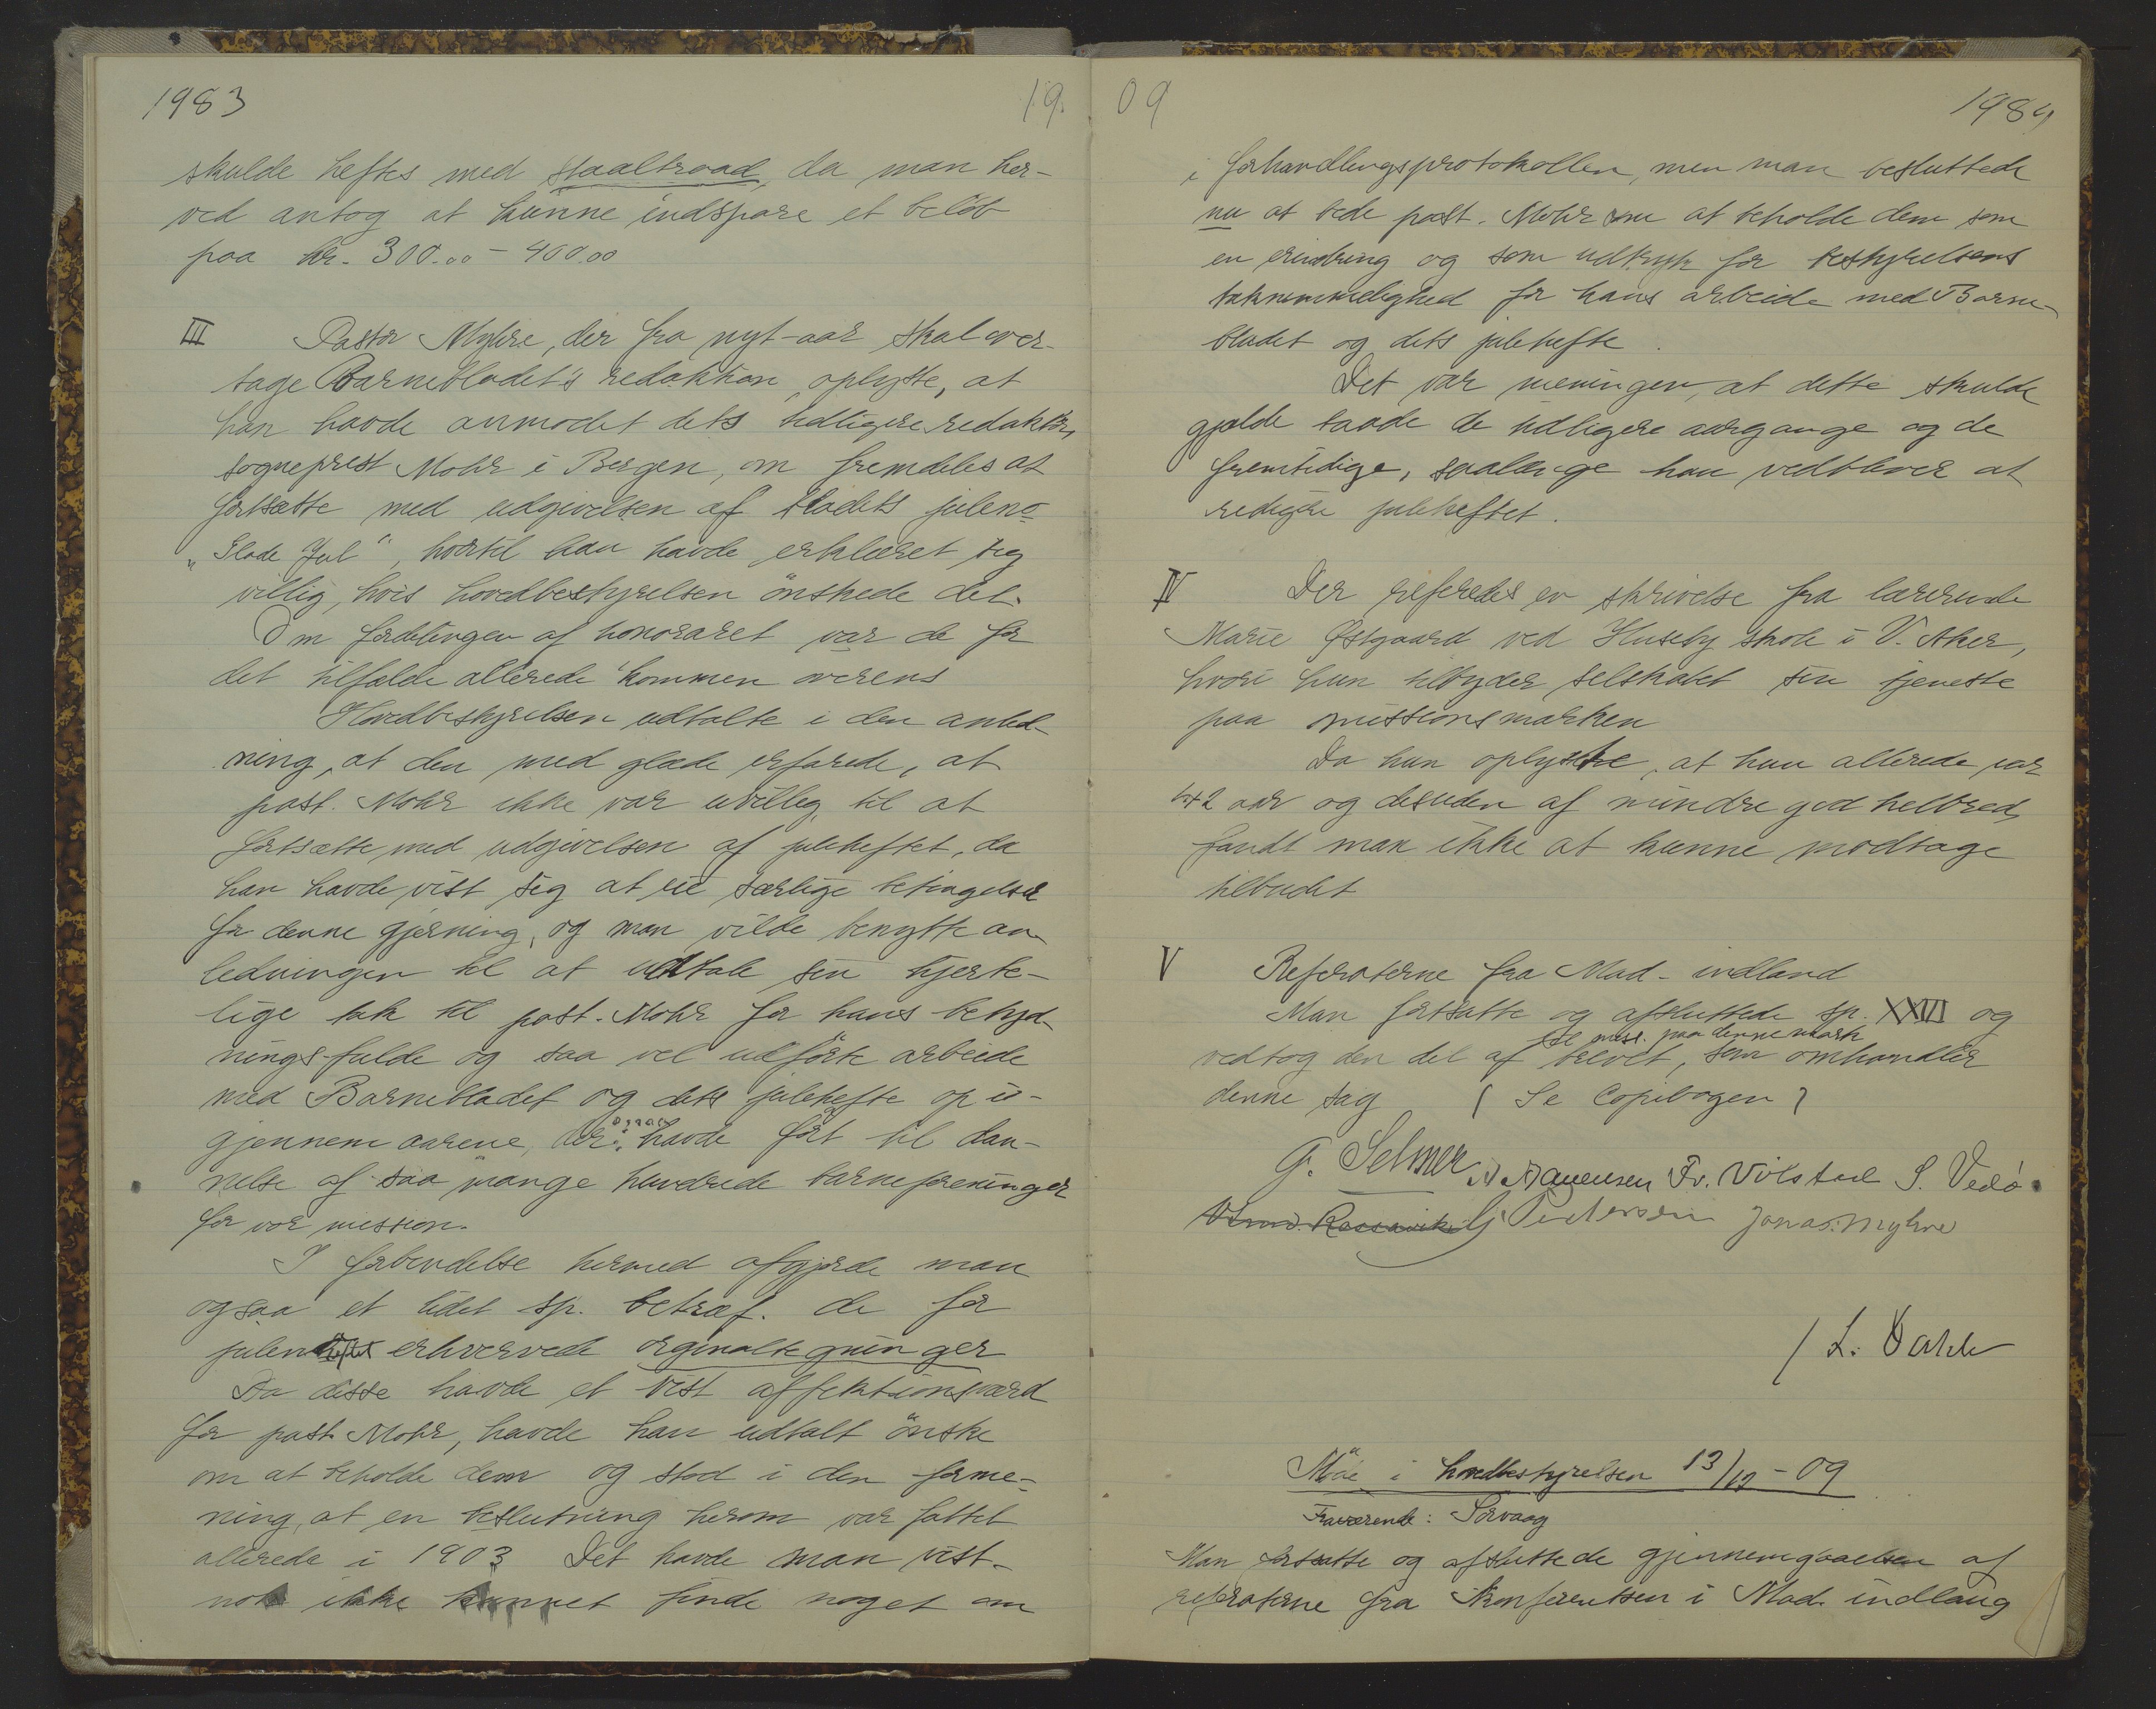 1983
19.
skulde heftes med staaltraad, da man her-
ved antog at kunne indspare et beløb
paa kr. 300.00 - 400.00
III Pastor Myhre, der fra nyt-aar skal over-
tage Barnebladet's redaktion, oplyste, at
han havde anmodet dets tidligere redaktør,
sogneprest Mohr i Bergen, om fremdeles at
fortsætte med udgivelsen af bladets juleno
"Glade Jul", hvortil han havde erklæret sig
villig, hvis hovedbestyrelsen önskede det.
Om fordelingen af honoraret var de for
det tilfælde allerede kommen overens
Hovedbestyrelsen udtalte i den anled-
ning, at den med glæde erfarede, at
past. Mohr ikke var uvillig til at
fortsætte med udgivelsen af juleheftet, da
han havde vist sig at eie særlige betingelser
for denne gjerning, og man vilde benytte an-
ledningen til at udtale sin hjerte-
lige tak til past. Mohr for hans betyd-
nings-fulde og saa vel udförte arbeide
med Barnebladet og dets julehefte op i-
gjennem aarene, der ogsaa havde fört til dan-
nelse af saa mange hundrede barneforeninger
for vor mission.
I forbindelse hermed afgjorde man
ogsaa et lidet sp. betræf. de for
juleheftet erhvervede orginaltegninger
Da disse havde et vist affektionsværd
for past. Mohr, havde han udtalt önske
om at beholde dem og stod i den forme-
ning, at en beslutning herom var fattet
allerede i 1903 Det havde man vist-
nok ikke kunnet finde noget om
09
1984
i forhandlingsprotokollen, men man besluttede
nu at bede past. Mohr om at beholde dem som
en erindring og som udtryk for bestyrelsens
taknemmelighed for hans arbeide med Barne-
bladet og dets julehefte.
Det var meningen, at dette skulde
gjælde baade de tidligere aargange og de
fremtidige, saalænge han vedbliver at
redigere juleheftet.
IV Der referedes en skrivelse fra lærerinde
Marie Østgaard ved Huseby skole i V. Aker,
hvori hun tilbyder selskabet sin tjeneste
paa missionsmarken
Da hun oplyste, at hun allerede var
42 aar og desuden af mindre god helbred,
fandt man ikke at kunne modtage
tilbudet
V Referaterne fra Mad. indland
Man fortsatte og afsluttede sp. XXVI og
til miss. paa denne mark
vedtog den del af brevet, som omhandler
denne sag (Se Copibogen)
G. Selmer Fr. Völstad S. Vedö.
Pedersen Jonas Myhre
/ L. Dahle
Möde i hovedbestyrelsen 13/12-09
Fraværende: Sørvaag
Man fortsatte og afsluttede gjennemgaaelsen af
referaterne fra Konferentsen i Mad. indland